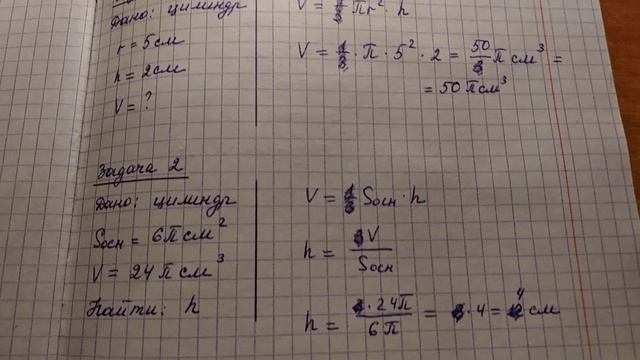 Дано: цилиндр
r = 5 см
h = 2 см
V = ?
V = πr² · h
V = π · 5² · 2 = 50 π см³ =
= 50 π см³
Задача 2
Дано: цилиндр
Sосн = 6π см²
V = 24 π см³
Найти: h
V = Sосн · h
h = V / Sосн
h = 24π / 6π = 4 = 4 см